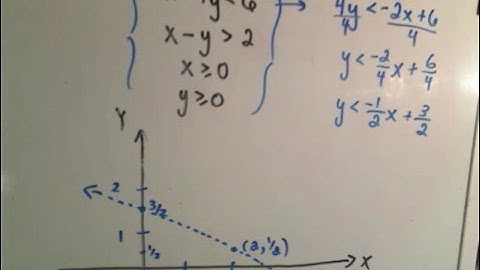 4y < 6
x - y > 2
x ≥ 0
y ≥ 0
4y/4 < -2x+6/4
y < -2/4 x + 6/4
y < -1/2 x + 3/2
Y
2
3/2
1
1/2
X